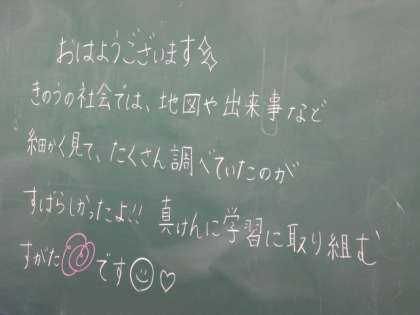 おはようございます
きのうの社会では、地図や出来事など
細かく見て、たくさん調べていたのが
すばらしかったよ!! 真けんに学習に取り組む
すがた◎です